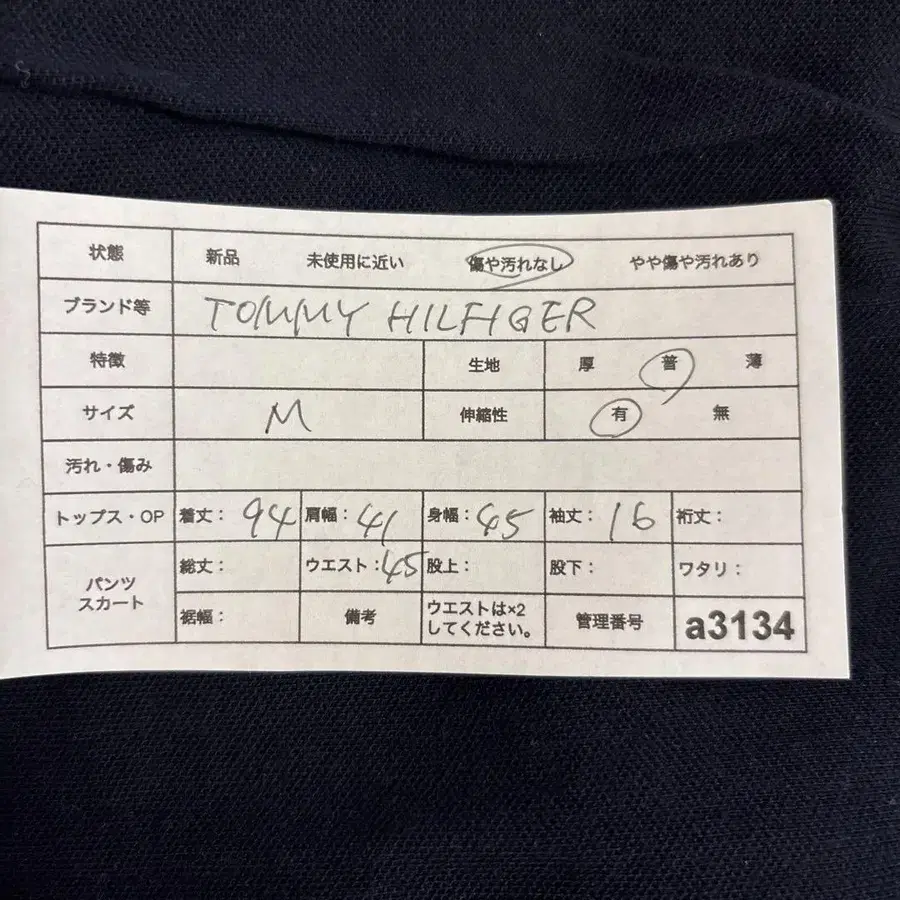 状態 新品 未使用に近い 傷や汚れなし やや傷や汚れあり
ブランド等 TOMMY HILFIGER
特徴 生地 厚 普 薄
サイズ M 伸縮性 有 無
汚れ・傷み
トップス・OP 着丈: 94 肩幅: 41 身幅: 45 袖丈: 16 裄丈:
パンツ スカート
総丈: ウエスト: 45 股上: 股下: ワタリ:
裾幅: 備考 ウエストは×2 してください。 管理番号 a3134